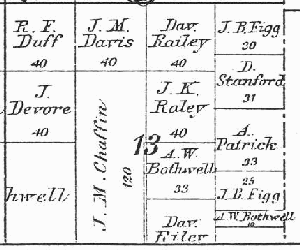 R. F.
Duff
40
J. M.
Davis
40
Dav.
Railey
40
J. B. Figg
20
D.
Stanford
31
J.
Devore
40
J. M. Chaffin
120
J. K.
Raley
40
13
A.
Patrick
33
A. W.
Bothwell
33
25
J. B. Figg
hwell
A. W. Bothwell
Dav.
Riley